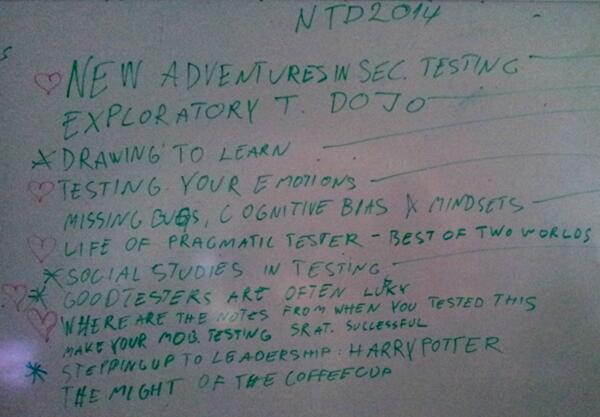 NTD2014
NEW ADVENTURES IN SEC. TESTING
EXPLORATORY T. DOJO
DRAWING TO LEARN
TESTING YOUR EMOTIONS
MISSING BUGS, COGNITIVE BIAS & MINDSETS
LIFE OF PRAGMATIC TESTER - BEST OF TWO WORLDS
SOCIAL STUDIES IN TESTING
GOOD TESTERS ARE OFTEN LUKY
WHERE ARE THE NOTES FROM WHEN YOU TESTED THIS
MAKE YOUR MOB. TESTING SRAT. SUCCESSFUL
STEPPING UP TO LEADERSHIP: HARRY POTTER
THE MIGHT OF THE COFFEECUP